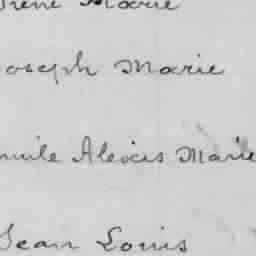 Irene Marie
Joseph Marie
Emile Alexis Marie
Jean Louis